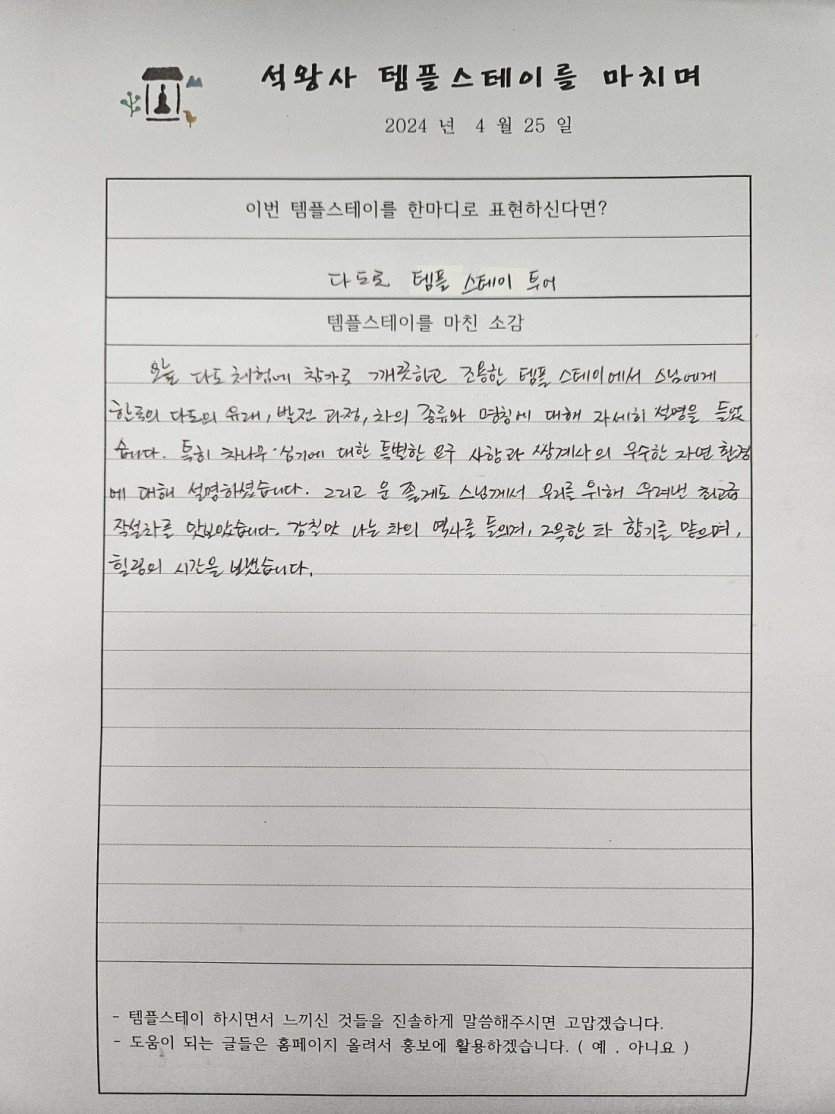 석왕사 템플스테이를 마치며
2024 년 4 월 25 일
이번 템플스테이를 한마디로 표현하신다면?
다도로 템플 스테이 투어
템플스테이를 마친 소감
오늘 다도 체험에 참가로 깨끗하고 조용한 템플 스테이에서 스님에게
한국의 다도의 유래, 발전 과정, 차의 종류와 명칭에 대해 자세히 설명을 들었
습니다. 특히 차나무 심기에 대한 특별한 요구 사항과 쌍계사의 우수한 자연 환경
에 대해 설명하셨습니다. 그리고 운 좋게도 스님께서 우리를 위해 우려낸 최고급
작설차를 맛보았습니다. 감칠맛 나는 차의 역사를 들으며, 그윽한 차 향기를 맡으며,
힐링의 시간을 보냈습니다.
- 템플스테이 하시면서 느끼신 것들을 진솔하게 말씀해주시면 고맙겠습니다.
- 도움이 되는 글들은 홈페이지 올려서 홍보에 활용하겠습니다. ( 예 . 아니요 )